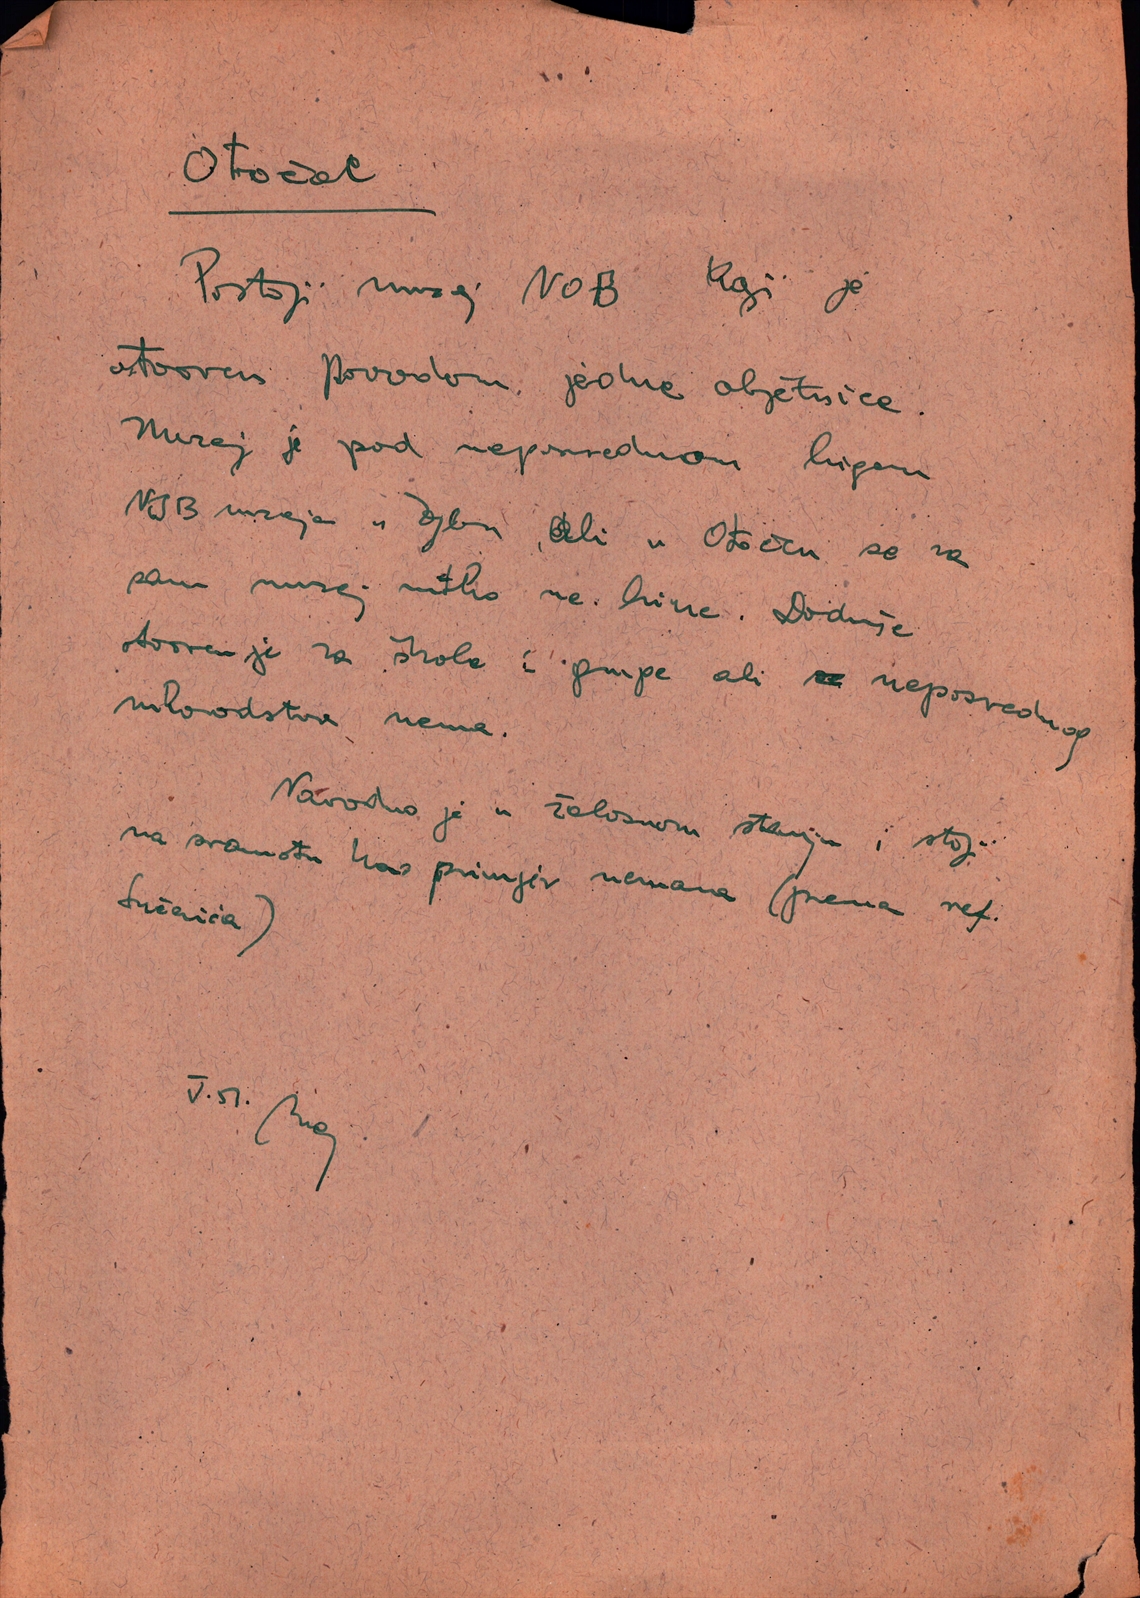 Otočac
Postoji muzej NOB koji je
otvoren povodom jedne obljetnice.
Muzej je pod neposrednom brigom
NOB muzeja u Zgbu ali u Otočcu se za
sam muzej nitko ne brine. Doduše
otvoren je za škole i grupe ali neposrednog
rukovodstva nema.
Navodno je u žalosnom stanju i stoji
na sramotu kao primjer nemara (prema ref.
V.51.